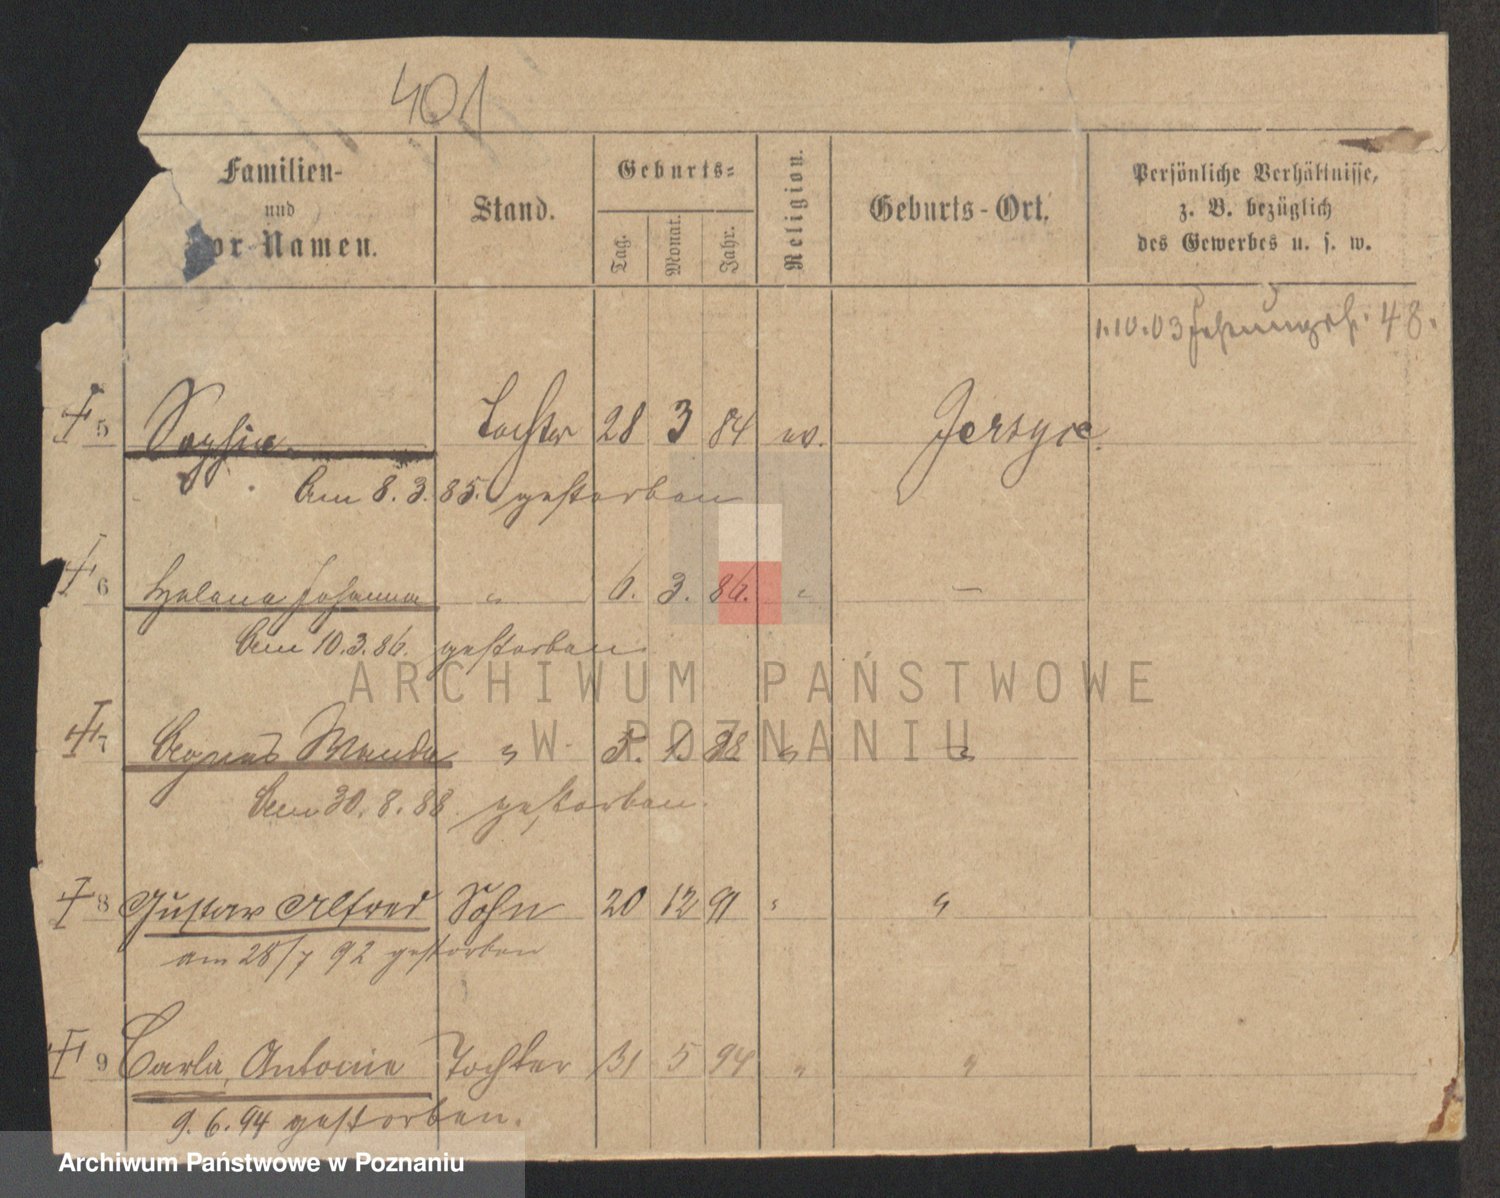 401
Familien-
und
Vor-Namen.
Stand.
Geburts-
Tag.
Monat.
Jahr.
Religion.
Geburts-Ort.
Persönliche Verhältnisse,
z. B. bezüglich
des Gewerbes u. s. w.
1.10.03 48.
5 Sophie Tochter 28 3 84 ev. Jersyce.
Am 8.3.85. gestorben
6 Helena Johanna " 6. 3. 86. " —
Am 10.3.86. gestorben
7 Agnes Wanda " " "
Am 30.8.88. gestorben.
8 Gustav Alfred Sohn 20 12 91 " "
am 28/7 92 gestorben
9 Carla, Antonie Tochter 31 5 94 " "
9.6.94 gestorben.
ARCHIWUM PAŃSTWOWE
W POZNANIU
Archiwum Państwowe w Poznaniu